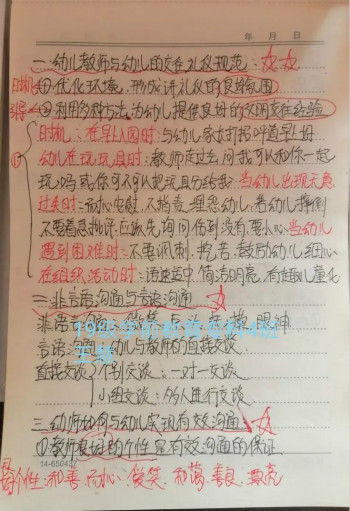 年 月 日
一.幼儿教师与幼儿的交往礼仪规范:
①优化环境,形成讲礼仪的良好氛围
②利用多种方法,为幼儿提供良好的文明交往经验
时机:在早上入园时:与幼儿家长打招呼道早上好
幼儿在玩玩具时:教师走过去问我可以和你一起
玩吗或你可不可以把玩具分给我 当幼儿出现无意
过失时:耐心安慰,不指责、埋怨幼儿,若幼儿摔倒
不要着急批评,应首先询问伤到没有,要小心 当幼儿
遇到困难时:不要讽刺、挖苦、鼓励幼儿细心
在组织活动时:语速适中 简洁明亮,有趣儿童化
二.非言语沟通与言语沟通
非言语沟通:微笑 点头 抚摸 眼神
言语沟通:幼儿与教师的直接交谈
直接交谈 个别交谈:一对一交谈
小组交谈:多人进行交谈
三.幼师如何与幼儿实现有效沟通
①教师良好的个性是有效沟通的保证
14-6504
个性:和善 耐心 微笑 和蔼 善良 漂亮